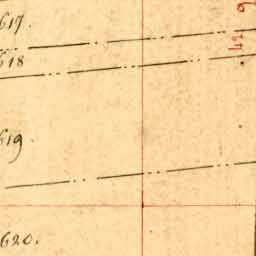 617.
618
619
620.